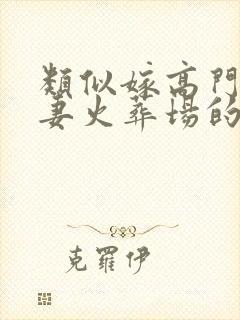 類似嫁高門
妻火葬場的
克羅伊